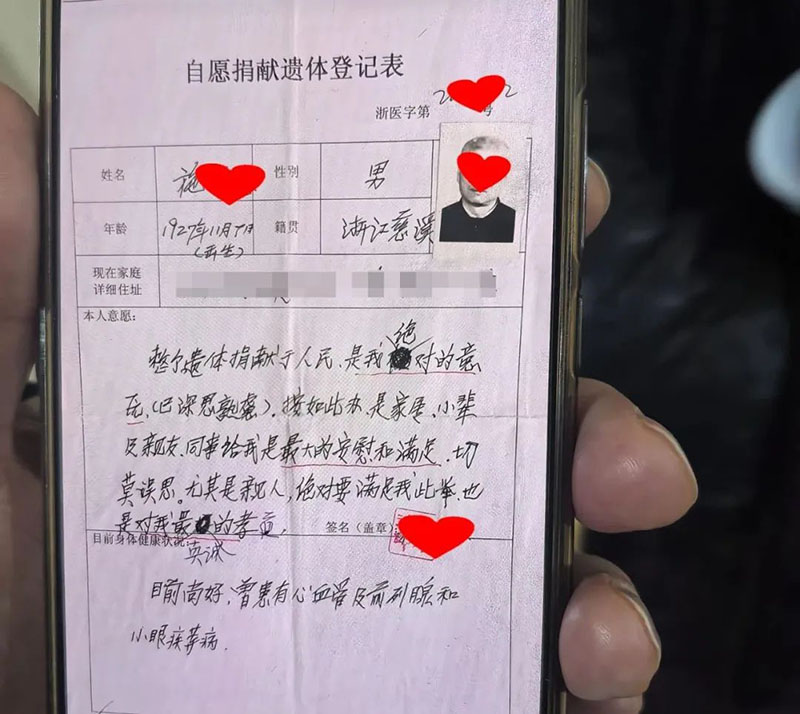 自愿捐献遗体登记表
浙医字第 2 2号
姓名 施 性别 男
年龄 1927年11月7日 籍贯 浙江慈溪
(出生)
现在家庭
详细住址
本人意愿:
绝
整个遗体捐献于人民、是我对的意
志,(已深思熟虑)。按如此办、是家属、小辈
及亲友、同事给我是最大的安慰和满足、切
莫误思。尤其是亲人,绝对要满足我此举、也
是对我最的孝 签名(盖章)
目前身体健康状况:
目前尚好、曾患有心血管及前列腺和
小眼疾等病.